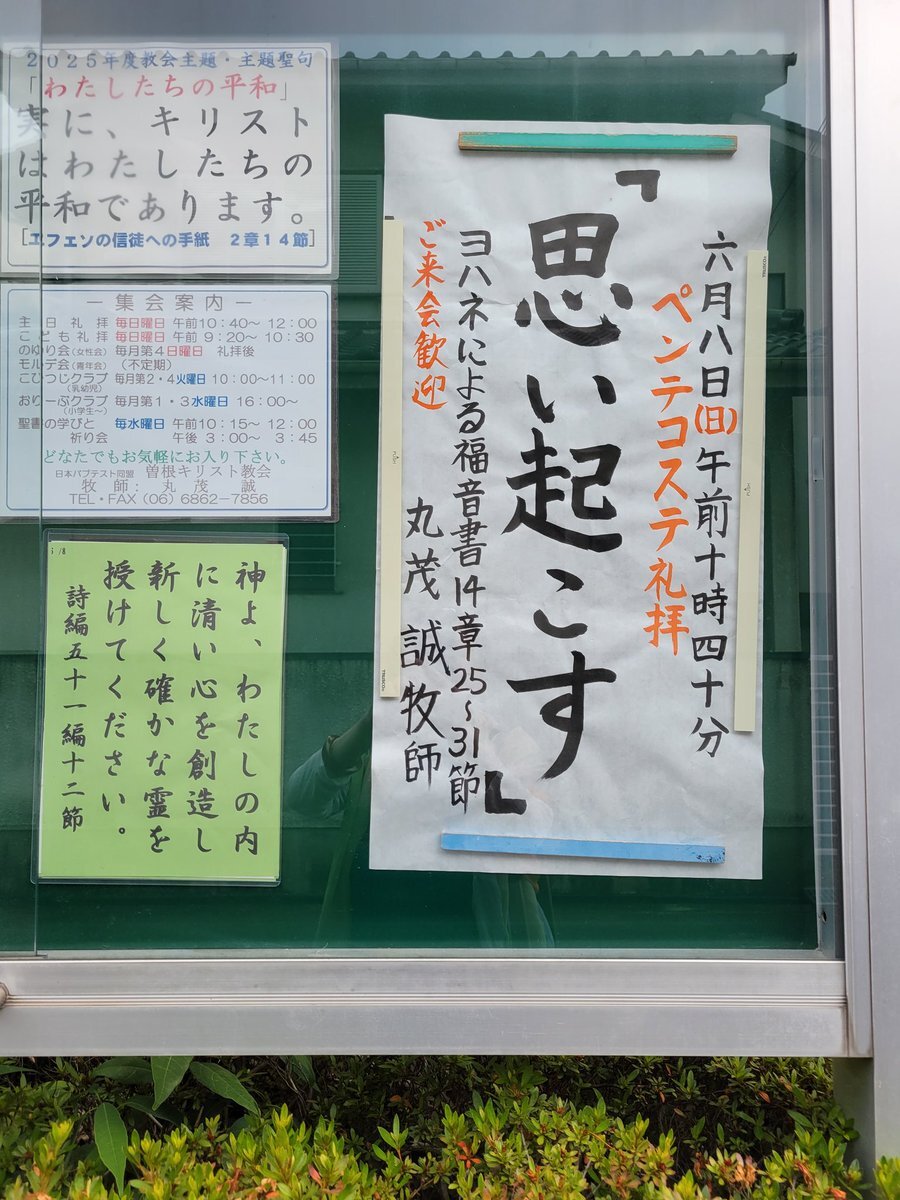 2025年度教会主題・主題聖句
「わたしたちの平和」
実に、キリスト
はわたしたちの
平和であります。
[エフェソの信徒への手紙 2章14節]
― 集会案内 ―
主日礼拝 毎日曜日 午前10:40～12:00
こども礼拝 毎日曜日 午前9:20～10:30
のゆり会(女性会) 毎月第4日曜日 礼拝後
モルデ会(青年会) (不定期)
こひつじクラブ 毎月第2・4火曜日 10:00～11:00
(乳幼児)
おりーぶクラブ 毎月第1・3水曜日 16:00～
(小学生～)
聖書の学びと 毎水曜日 午前10:15～12:00
祈り会 午後3:00～3:45
どなたでもお気軽にお入り下さい。
日本バプテスト同盟 曽根キリスト教会
牧師: 丸茂 誠
TEL・FAX(06)6862-7856
神よ、わたしの内
に清い心を創造し
新しく確かな霊を
授けてください。
詩編五十一編十二節
六月八日(日)午前十時四十分
ペンテコステ礼拝
「思い起こす」
ヨハネによる福音書14章25～31節
ご来会歓迎
丸茂 誠牧師